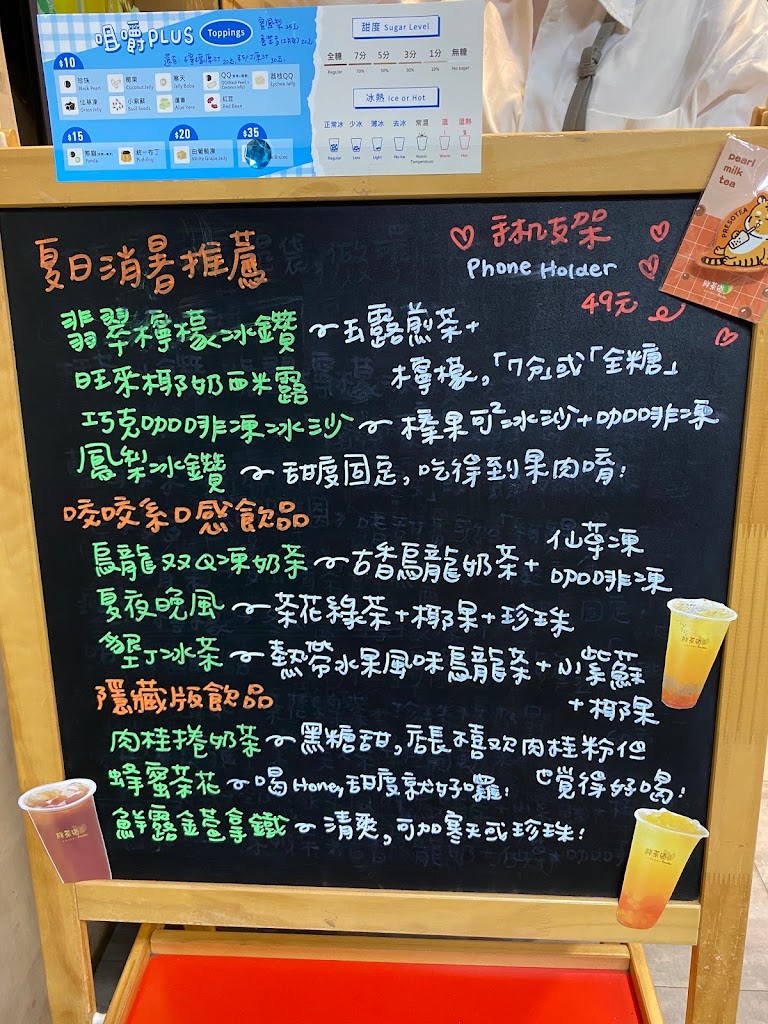 咀嚼PLUS Toppings
$10
珍珠 Black Pearl
椰果 Coconut Jelly
寒天 Jelly Boba
QQ
荔枝QQ Lychee Jelly
仙草凍 Grass Jelly
小紫蘇 Basil Seeds
蘆薈 Aloe Vera
紅豆 Red Bean
$15
熊貓 Panda
統一布丁 Pudding
$20
白葡萄凍 White Grape Jelly
$35
甜度 Sugar Level
全糖 7分 5分 3分 1分 無糖
Regular 70% 50% 30% 10% No sugar
冰熱 Ice or Hot
正常冰 少冰 薄冰 去冰 常溫 溫 溫熱
Regular Less Light No Ice Room Temperature Warm Hot
pearl
milk
tea
PRESOTEA
鮮茶道
夏日消暑推薦
手机支架
Phone Holder
49元
翡翠檸檬冰鑽~玉露煎茶+
檸檬,「7分」或「全糖」
旺來椰奶西米露
巧克咖啡凍冰沙~榛果可²冰沙+咖啡凍
鳳梨冰鑽~甜度固定,吃得到果肉唷!
咬咬系口感飲品
烏龍双Q凍奶茶~古香烏龍奶茶+仙草凍
咖啡凍
夏夜晚風~茶花綠茶+椰果+珍珠
墾丁冰茶~熱帶水果風味烏龍茶+小紫蘇
+椰果
隱藏版飲品
肉桂捲奶茶~黑糖甜,店長不喜歡肉桂粉但
也覺得好喝!
蜂蜜茶花~喝Honey甜度就好囉!
鮮露蕎拿鐵~清爽,可加寒天或珍珠!
鮮茶道
鮮茶道
鮮茶道